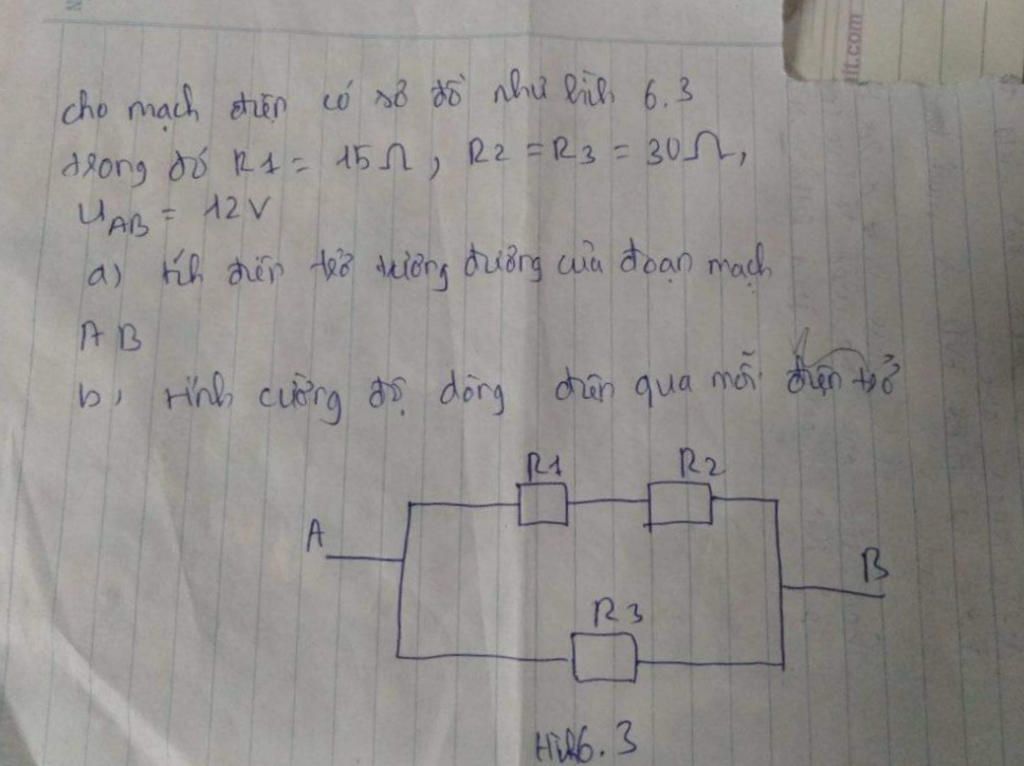 it.com
cho mạch điện có sơ đồ như hình 6.3
trong đó R1 = 15Ω, R2 = R3 = 30Ω,
UAB = 12V
a) tính điện trở tương đương của đoạn mạch
AB
b, tính cường độ dòng điện qua mỗi điện trở
R1 R2
A
B
R3
Hình 6.3